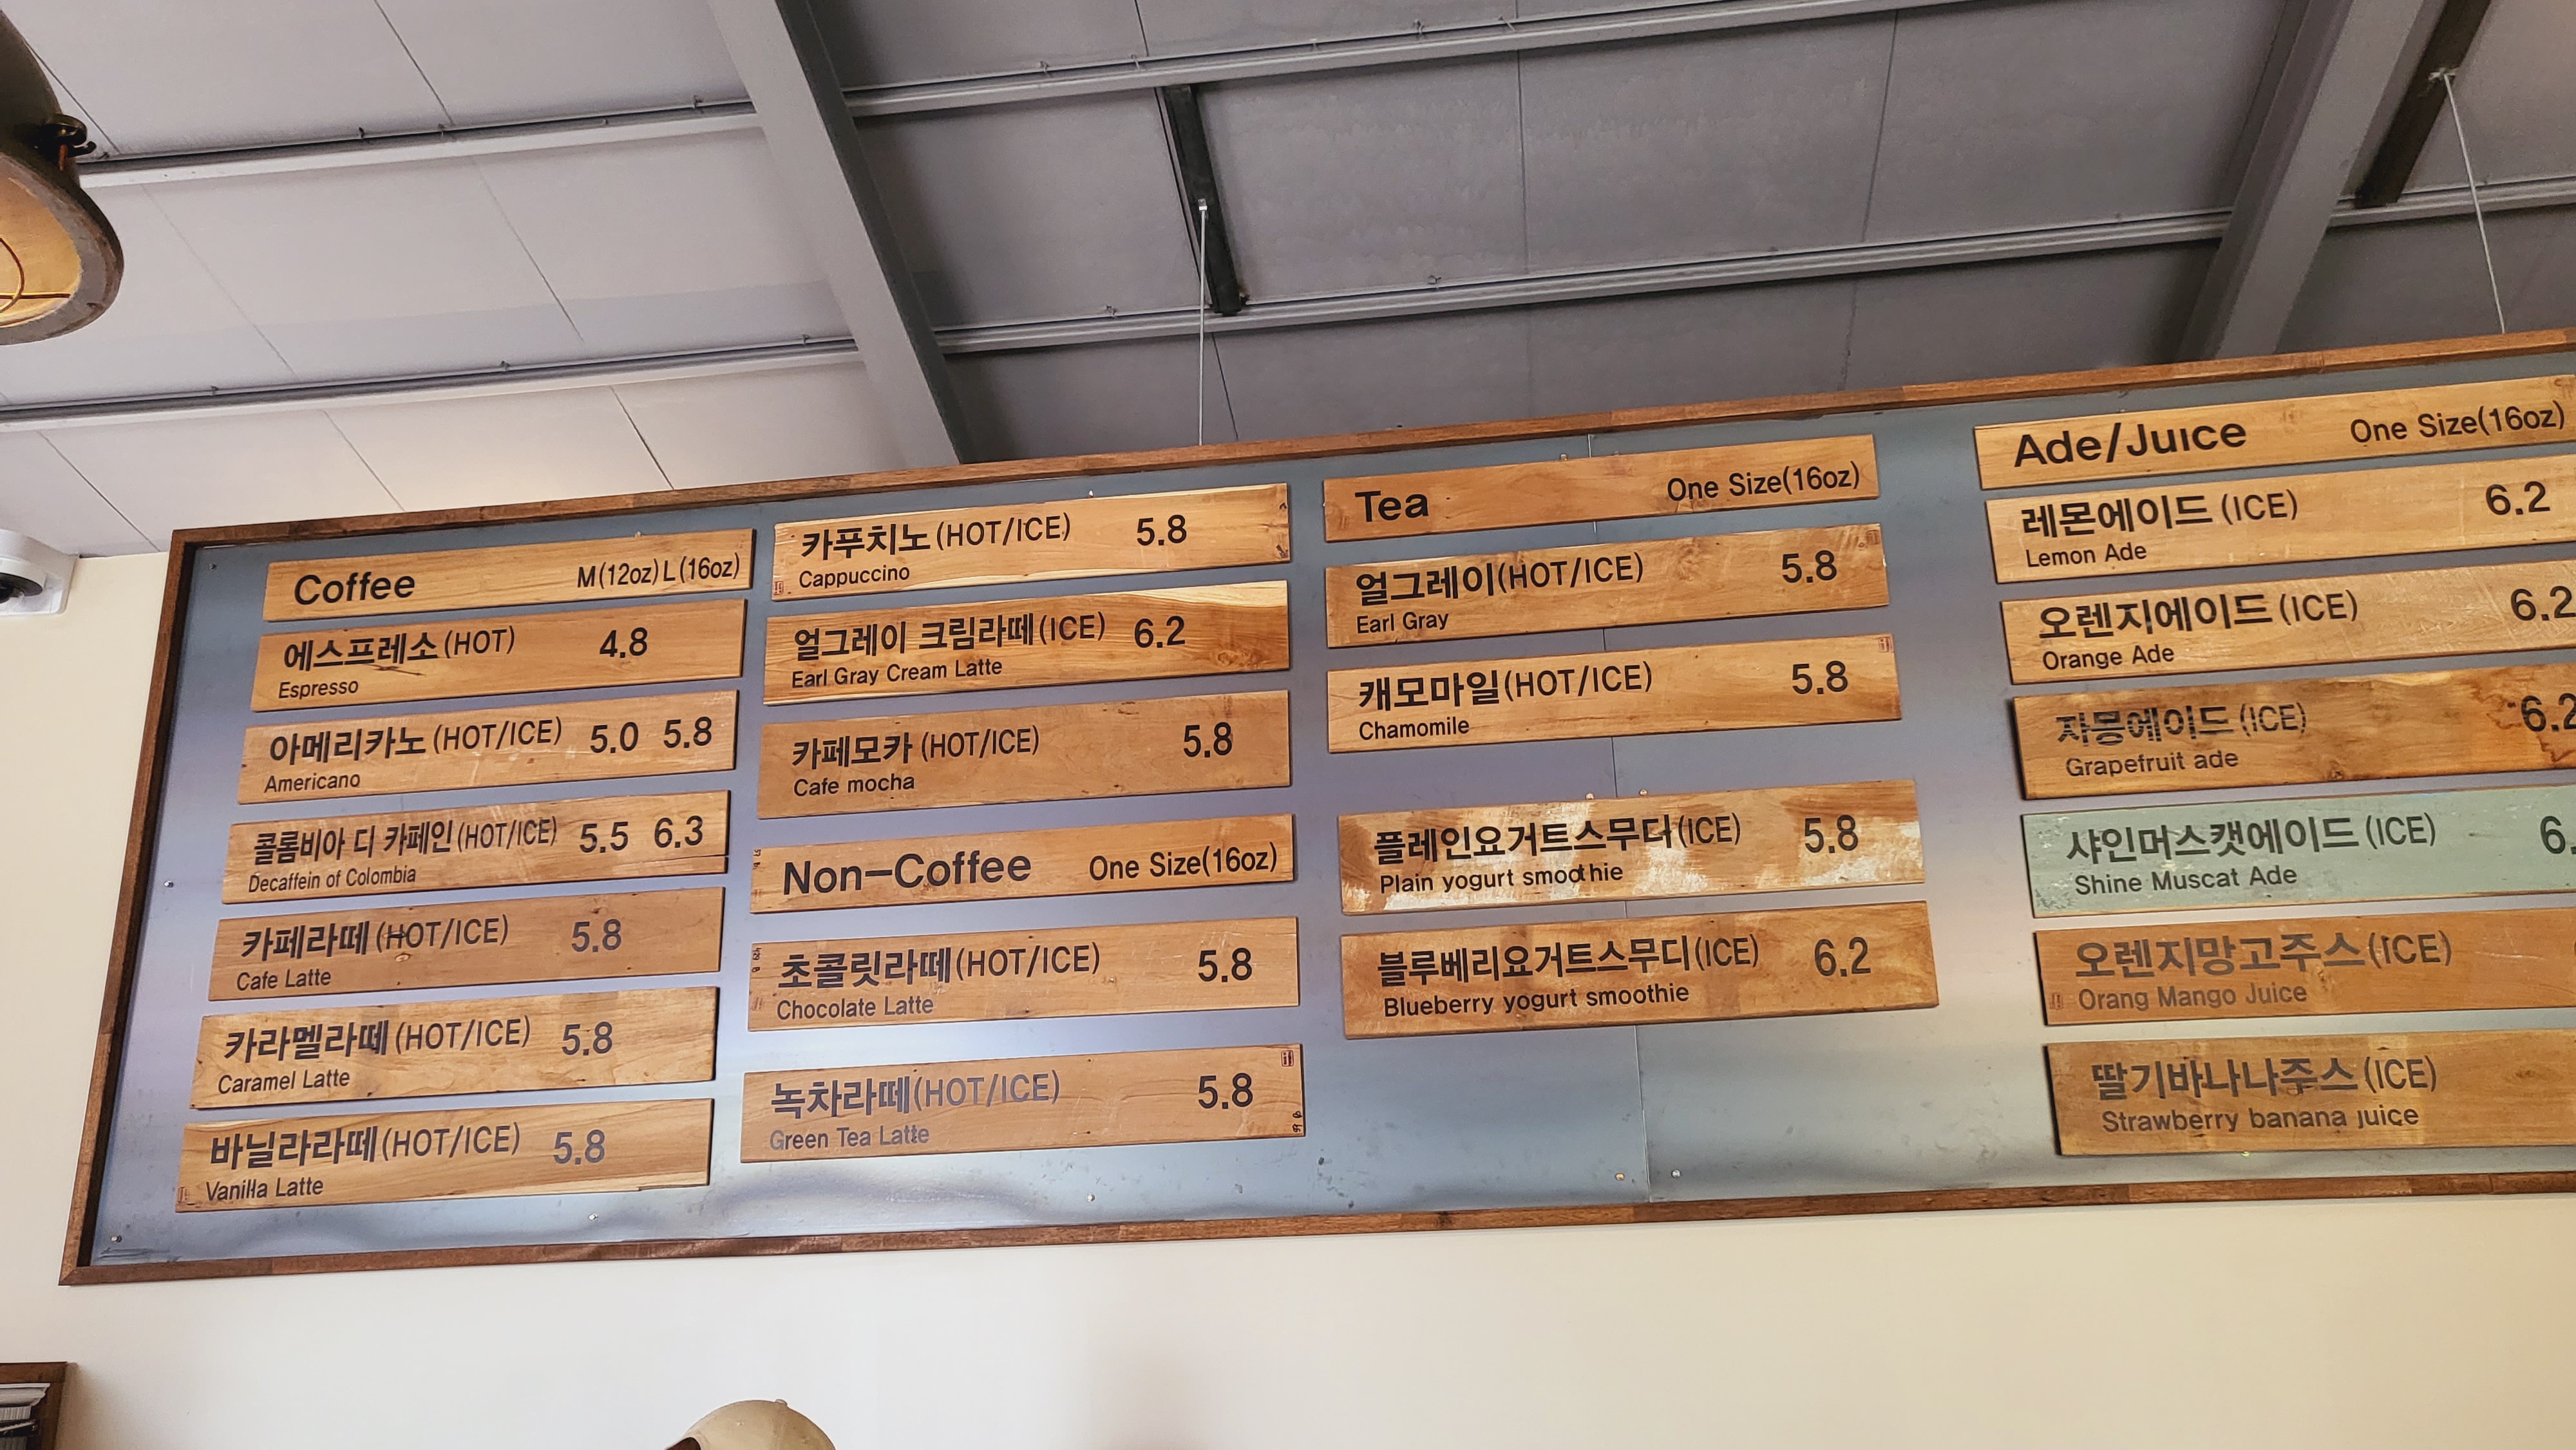 Coffee M(12oz) L(16oz)
에스프레소(HOT) 4.8
Espresso
아메리카노(HOT/ICE) 5.0 5.8
Americano
콜롬비아 디 카페인(HOT/ICE) 5.5 6.3
Decaffein of Colombia
카페라떼(HOT/ICE) 5.8
Cafe Latte
카라멜라떼(HOT/ICE) 5.8
Caramel Latte
바닐라라떼(HOT/ICE) 5.8
Vanilla Latte
카푸치노(HOT/ICE) 5.8
Cappuccino
얼그레이 크림라떼(ICE) 6.2
Earl Gray Cream Latte
카페모카 (HOT/ICE) 5.8
Cafe mocha
Non-Coffee One Size(16oz)
초콜릿라떼(HOT/ICE) 5.8
Chocolate Latte
녹차라떼(HOT/ICE) 5.8
Green Tea Latte
Tea One Size(16oz)
얼그레이(HOT/ICE) 5.8
Earl Gray
캐모마일(HOT/ICE) 5.8
Chamomile
플레인요거트스무디(ICE) 5.8
Plain yogurt smoothie
블루베리요거트스무디(ICE) 6.2
Blueberry yogurt smoothie
Ade/Juice One Size(16oz)
레몬에이드 (ICE) 6.2
Lemon Ade
오렌지에이드 (ICE) 6.2
Orange Ade
자몽에이드 (ICE) 6.2
Grapefruit ade
샤인머스캣에이드 (ICE) 6.
Shine Muscat Ade
오렌지망고주스(ICE)
Orang Mango Juice
딸기바나나주스 (ICE)
Strawberry banana juice